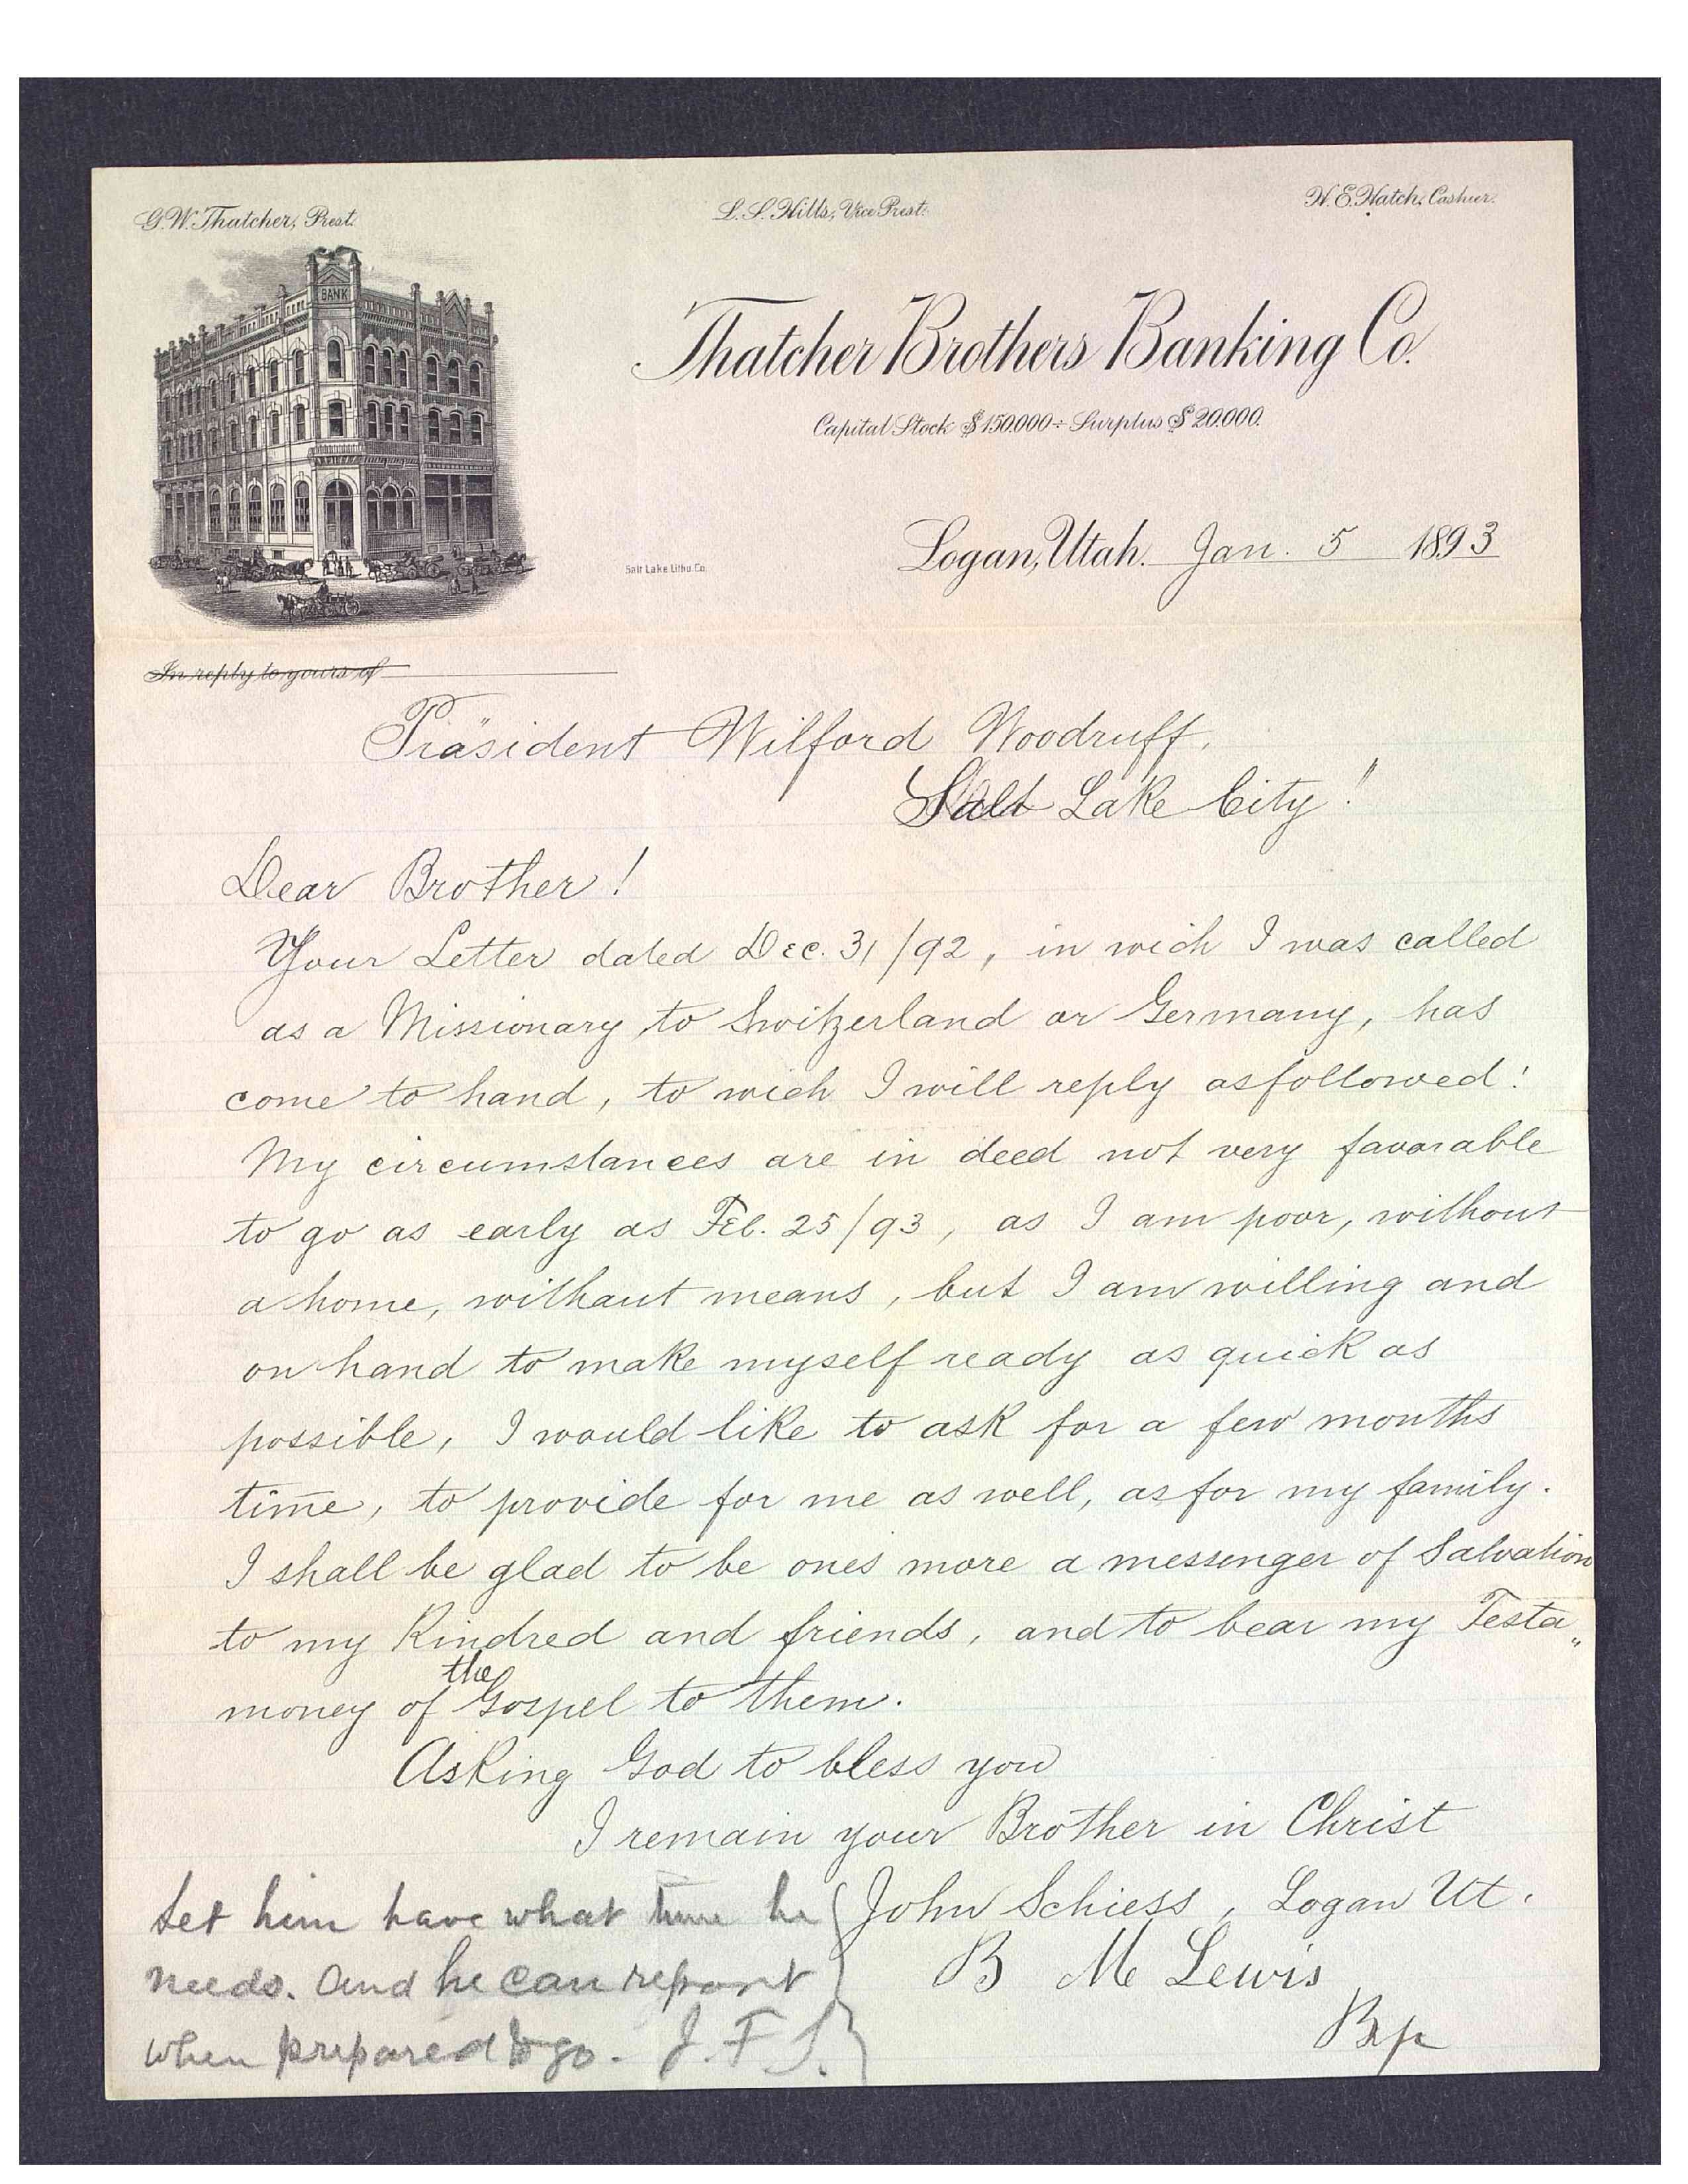 G.W. Thatcher, Prest.
L.S. Hills, Vice Prest.
H.E. Hatch, Cashier.
BANK
Thatcher Brothers Banking Co.
Capital Stock $150.000 ÷ Surplus $20.000.
Salt Lake Litho. Co.
Logan, Utah. Jan. 5 1893
In reply to yours of
Präsident Wilford Woodruff.
Salt Lake City!
Dear Brother!
Your Letter dated Dec. 31/92, in wich I was called
as a Missionary to Switzerland or Germany, has
come to hand, to wich I will reply as followed:
My circumstances are in deed not very favorable
to go as early as Feb. 25/93, as I am poor, without
a home, without means, but I am willing and
on hand to make myself ready as quick as
possible, I would like to ask for a few months
time, to provide for me as well, as for my family.
I shall be glad to be ones more a messenger of Salvation
to my Kindred and friends, and to bear my Testa„
money of the Gospel to them.
Asking God to bless you
I remain your Brother in Christ
John Schiess, Logan Ut.
B M Lewis
Bp
Let him have what time he
needs. And he can report
when prepared to go. J. F. S.